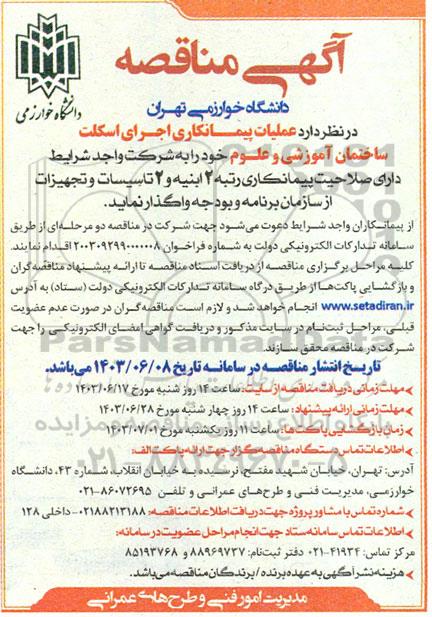 آگهی مناقصه
دانشگاه خوارزمی
دانشگاه خوارزمی تهران
در نظر دارد عملیات پیمانکاری اجرای اسکلت
ساختمان آموزشی و علوم خود را به شرکت واجد شرایط
دارای صلاحیت پیمانکاری رتبه ۲ ابنیه و ۲ تاسیسات و تجهیزات
از سازمان برنامه و بودجه واگذار نماید.
از پیمانکاران واجد شرایط دعوت می‌شود جهت شرکت در مناقصه دو مرحله‌ای از طریق
سامانه تدارکات الکترونیکی دولت به شماره فراخوان ۲۰۰۳۰۹۲۹۹۰۰۰۰۰۰۸ اقدام نمایند.
کلیه مراحل برگزاری مناقصه از دریافت اسناد مناقصه تا ارائه پیشنهاد مناقصه‌گران
و بازگشایی پاکت‌ها از طریق درگاه سامانه تدارکات الکترونیکی دولت (ستاد) به آدرس
www.setadiran.ir انجام خواهد شد و لازم است مناقصه‌گران در صورت عدم عضویت
قبلی، مراحل ثبت‌نام در سایت مذکور و دریافت گواهی امضای الکترونیکی را جهت
شرکت در مناقصه محقق سازند.
تاریخ انتشار مناقصه در سامانه تاریخ ۱۴۰۳/۰۶/۰۸ می‌باشد.
مهلت زمانی دریافت مناقصه از سایت: ساعت ۱۴ روز شنبه مورخ ۱۴۰۳/۰۶/۱۷
مهلت زمانی ارائه پیشنهاد: ساعت ۱۴ روز چهارشنبه مورخ ۱۴۰۳/۰۶/۲۸
زمان بازگشایی پاکت‌ها: ساعت ۱۱ روز یکشنبه مورخ ۱۴۰۳/۰۷/۰۱
اطلاعات تماس دستگاه مناقصه‌گزار جهت ارائه پاکت الف:
آدرس: تهران، خیابان شهید مفتح، نرسیده به خیابان انقلاب، شماره ۴۳، دانشگاه
خوارزمی، مدیریت فنی و طرح‌های عمرانی و تلفن ۸۶۰۷۲۶۹۵-۰۲۱
شماره تماس با مشاور پروژه جهت دریافت اطلاعات مناقصه: ۰۲۱۸۸۲۱۳۱۸۸- داخلی ۱۲۸
اطلاعات تماس سامانه ستاد جهت انجام مراحل عضویت در سامانه:
مرکز تماس: ۴۱۹۳۴-۰۲۱ دفتر ثبت‌نام: ۸۸۹۶۹۷۳۷ و ۸۵۱۹۳۷۶۸
هزینه نشر آگهی به عهده برنده/ برندگان مناقصه می‌باشد.
مدیریت امور فنی و طرح‌های عمرانی